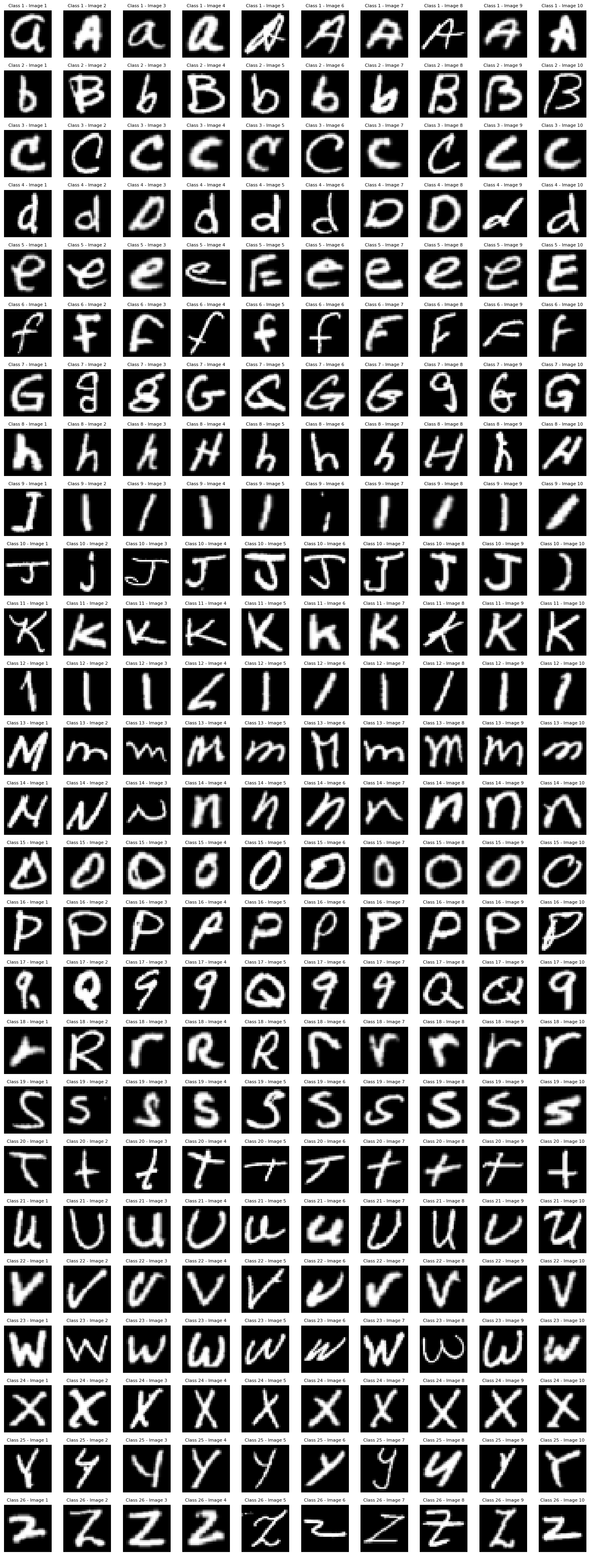 Class 1 - Image 1 Class 1 - Image 2 Class 1 - Image 3 Class 1 - Image 4 Class 1 - Image 5 Class 1 - Image 6 Class 1 - Image 7 Class 1 - Image 8 Class 1 - Image 9 Class 1 - Image 10
a A a a A A A A A A
Class 2 - Image 1 Class 2 - Image 2 Class 2 - Image 3 Class 2 - Image 4 Class 2 - Image 5 Class 2 - Image 6 Class 2 - Image 7 Class 2 - Image 8 Class 2 - Image 9 Class 2 - Image 10
b B b B b b b B B B
Class 3 - Image 1 Class 3 - Image 2 Class 3 - Image 3 Class 3 - Image 4 Class 3 - Image 5 Class 3 - Image 6 Class 3 - Image 7 Class 3 - Image 8 Class 3 - Image 9 Class 3 - Image 10
C C C C C C C C C C
Class 4 - Image 1 Class 4 - Image 2 Class 4 - Image 3 Class 4 - Image 4 Class 4 - Image 5 Class 4 - Image 6 Class 4 - Image 7 Class 4 - Image 8 Class 4 - Image 9 Class 4 - Image 10
d d D d d d D D d d
Class 5 - Image 1 Class 5 - Image 2 Class 5 - Image 3 Class 5 - Image 4 Class 5 - Image 5 Class 5 - Image 6 Class 5 - Image 7 Class 5 - Image 8 Class 5 - Image 9 Class 5 - Image 10
e e e e E e e e e E
Class 6 - Image 1 Class 6 - Image 2 Class 6 - Image 3 Class 6 - Image 4 Class 6 - Image 5 Class 6 - Image 6 Class 6 - Image 7 Class 6 - Image 8 Class 6 - Image 9 Class 6 - Image 10
f F F f f f F F F f
Class 7 - Image 1 Class 7 - Image 2 Class 7 - Image 3 Class 7 - Image 4 Class 7 - Image 5 Class 7 - Image 6 Class 7 - Image 7 Class 7 - Image 8 Class 7 - Image 9 Class 7 - Image 10
G g g G G G G g G G
Class 8 - Image 1 Class 8 - Image 2 Class 8 - Image 3 Class 8 - Image 4 Class 8 - Image 5 Class 8 - Image 6 Class 8 - Image 7 Class 8 - Image 8 Class 8 - Image 9 Class 8 - Image 10
h h h H h h h H h H
Class 9 - Image 1 Class 9 - Image 2 Class 9 - Image 3 Class 9 - Image 4 Class 9 - Image 5 Class 9 - Image 6 Class 9 - Image 7 Class 9 - Image 8 Class 9 - Image 9 Class 9 - Image 10
I I I I I i I I I I
Class 10 - Image 1 Class 10 - Image 2 Class 10 - Image 3 Class 10 - Image 4 Class 10 - Image 5 Class 10 - Image 6 Class 10 - Image 7 Class 10 - Image 8 Class 10 - Image 9 Class 10 - Image 10
J j J J J J J J J J
Class 11 - Image 1 Class 11 - Image 2 Class 11 - Image 3 Class 11 - Image 4 Class 11 - Image 5 Class 11 - Image 6 Class 11 - Image 7 Class 11 - Image 8 Class 11 - Image 9 Class 11 - Image 10
K K K K K k K K K K
Class 12 - Image 1 Class 12 - Image 2 Class 12 - Image 3 Class 12 - Image 4 Class 12 - Image 5 Class 12 - Image 6 Class 12 - Image 7 Class 12 - Image 8 Class 12 - Image 9 Class 12 - Image 10
l l l L l l l l l l
Class 13 - Image 1 Class 13 - Image 2 Class 13 - Image 3 Class 13 - Image 4 Class 13 - Image 5 Class 13 - Image 6 Class 13 - Image 7 Class 13 - Image 8 Class 13 - Image 9 Class 13 - Image 10
M m m M m M m m m m
Class 14 - Image 1 Class 14 - Image 2 Class 14 - Image 3 Class 14 - Image 4 Class 14 - Image 5 Class 14 - Image 6 Class 14 - Image 7 Class 14 - Image 8 Class 14 - Image 9 Class 14 - Image 10
N N N n n n n n n n
Class 15 - Image 1 Class 15 - Image 2 Class 15 - Image 3 Class 15 - Image 4 Class 15 - Image 5 Class 15 - Image 6 Class 15 - Image 7 Class 15 - Image 8 Class 15 - Image 9 Class 15 - Image 10
O O O O O O O O O O
Class 16 - Image 1 Class 16 - Image 2 Class 16 - Image 3 Class 16 - Image 4 Class 16 - Image 5 Class 16 - Image 6 Class 16 - Image 7 Class 16 - Image 8 Class 16 - Image 9 Class 16 - Image 10
P P P P P P P P P P
Class 17 - Image 1 Class 17 - Image 2 Class 17 - Image 3 Class 17 - Image 4 Class 17 - Image 5 Class 17 - Image 6 Class 17 - Image 7 Class 17 - Image 8 Class 17 - Image 9 Class 17 - Image 10
q Q q q Q q q Q Q q
Class 18 - Image 1 Class 18 - Image 2 Class 18 - Image 3 Class 18 - Image 4 Class 18 - Image 5 Class 18 - Image 6 Class 18 - Image 7 Class 18 - Image 8 Class 18 - Image 9 Class 18 - Image 10
r R r R R r r r r r
Class 19 - Image 1 Class 19 - Image 2 Class 19 - Image 3 Class 19 - Image 4 Class 19 - Image 5 Class 19 - Image 6 Class 19 - Image 7 Class 19 - Image 8 Class 19 - Image 9 Class 19 - Image 10
S S S S S S S S S S
Class 20 - Image 1 Class 20 - Image 2 Class 20 - Image 3 Class 20 - Image 4 Class 20 - Image 5 Class 20 - Image 6 Class 20 - Image 7 Class 20 - Image 8 Class 20 - Image 9 Class 20 - Image 10
T t t T t T t t t t
Class 21 - Image 1 Class 21 - Image 2 Class 21 - Image 3 Class 21 - Image 4 Class 21 - Image 5 Class 21 - Image 6 Class 21 - Image 7 Class 21 - Image 8 Class 21 - Image 9 Class 21 - Image 10
u U u U u u U U U u
Class 22 - Image 1 Class 22 - Image 2 Class 22 - Image 3 Class 22 - Image 4 Class 22 - Image 5 Class 22 - Image 6 Class 22 - Image 7 Class 22 - Image 8 Class 22 - Image 9 Class 22 - Image 10
V V V V V V V V V V
Class 23 - Image 1 Class 23 - Image 2 Class 23 - Image 3 Class 23 - Image 4 Class 23 - Image 5 Class 23 - Image 6 Class 23 - Image 7 Class 23 - Image 8 Class 23 - Image 9 Class 23 - Image 10
W W W W W W W W W W
Class 24 - Image 1 Class 24 - Image 2 Class 24 - Image 3 Class 24 - Image 4 Class 24 - Image 5 Class 24 - Image 6 Class 24 - Image 7 Class 24 - Image 8 Class 24 - Image 9 Class 24 - Image 10
X X X X X X X X X X
Class 25 - Image 1 Class 25 - Image 2 Class 25 - Image 3 Class 25 - Image 4 Class 25 - Image 5 Class 25 - Image 6 Class 25 - Image 7 Class 25 - Image 8 Class 25 - Image 9 Class 25 - Image 10
Y y y Y y y y y y Y
Class 26 - Image 1 Class 26 - Image 2 Class 26 - Image 3 Class 26 - Image 4 Class 26 - Image 5 Class 26 - Image 6 Class 26 - Image 7 Class 26 - Image 8 Class 26 - Image 9 Class 26 - Image 10
Z Z Z Z Z Z Z Z Z Z